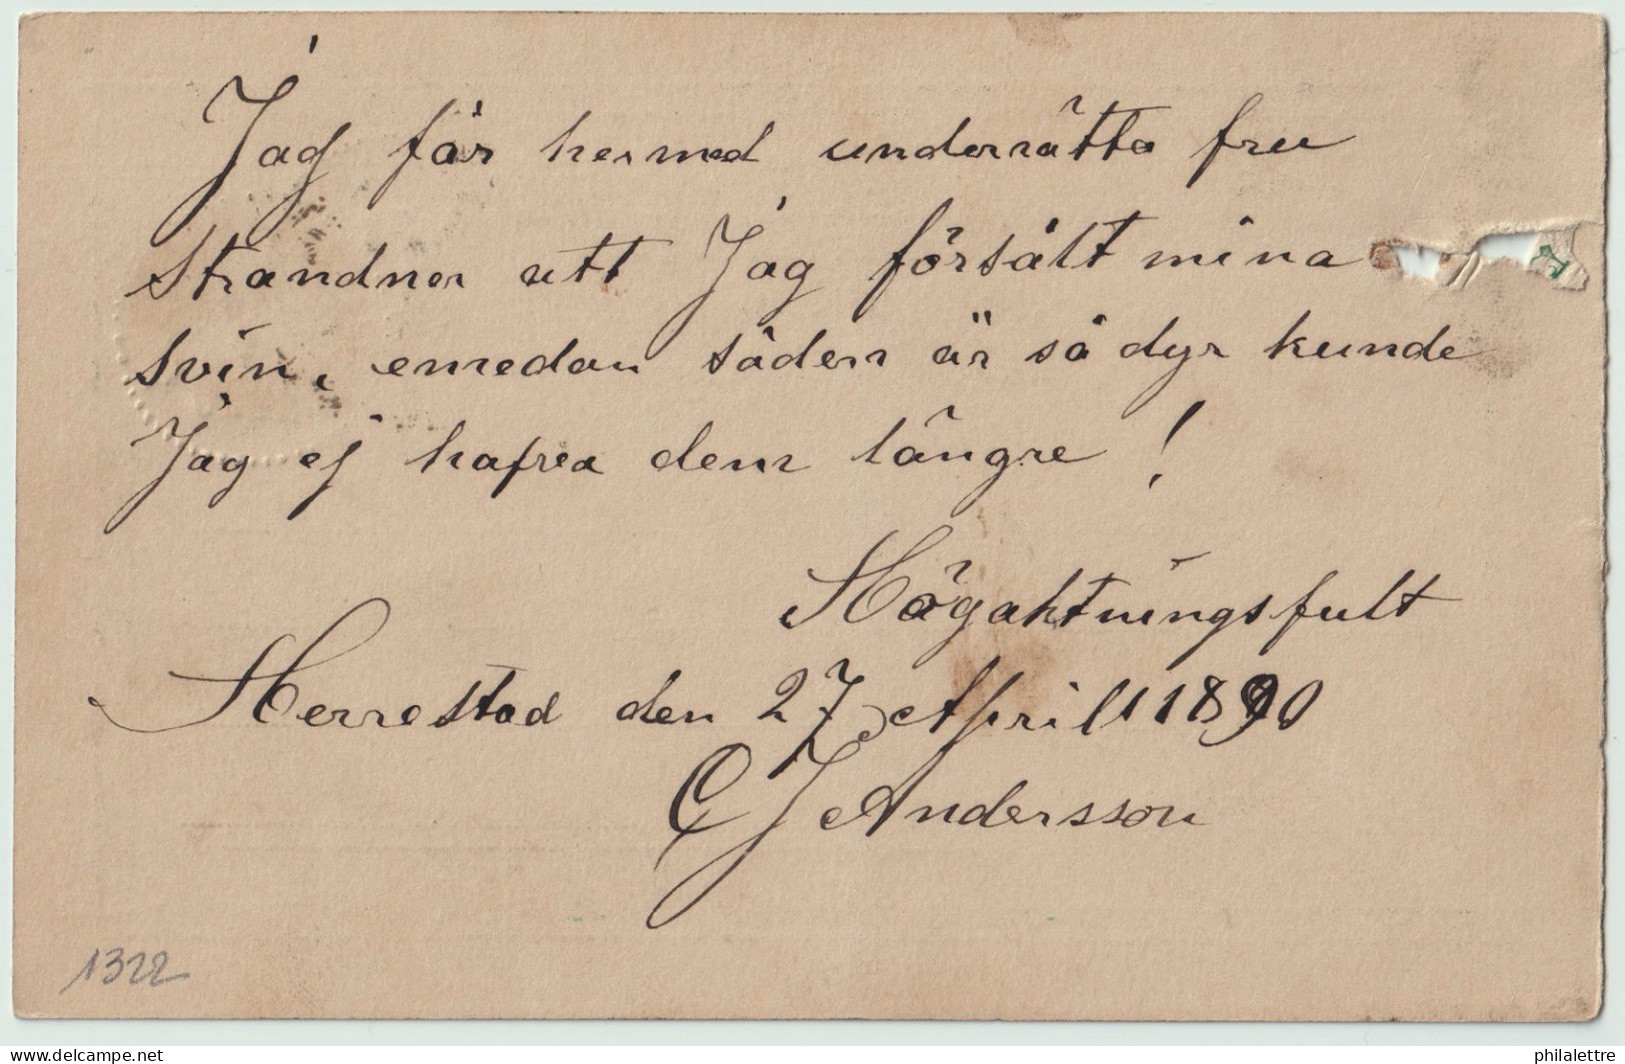 Jag får hermed underrätta fru
Strandner att Jag försålt mina
svin, emedan säden är så dyr kunde
Jag ej hafva dem längre!
Högaktningsfullt
Herrestad den 27 April 1890
C J Andersson
1322
delcampe.net
philalettre